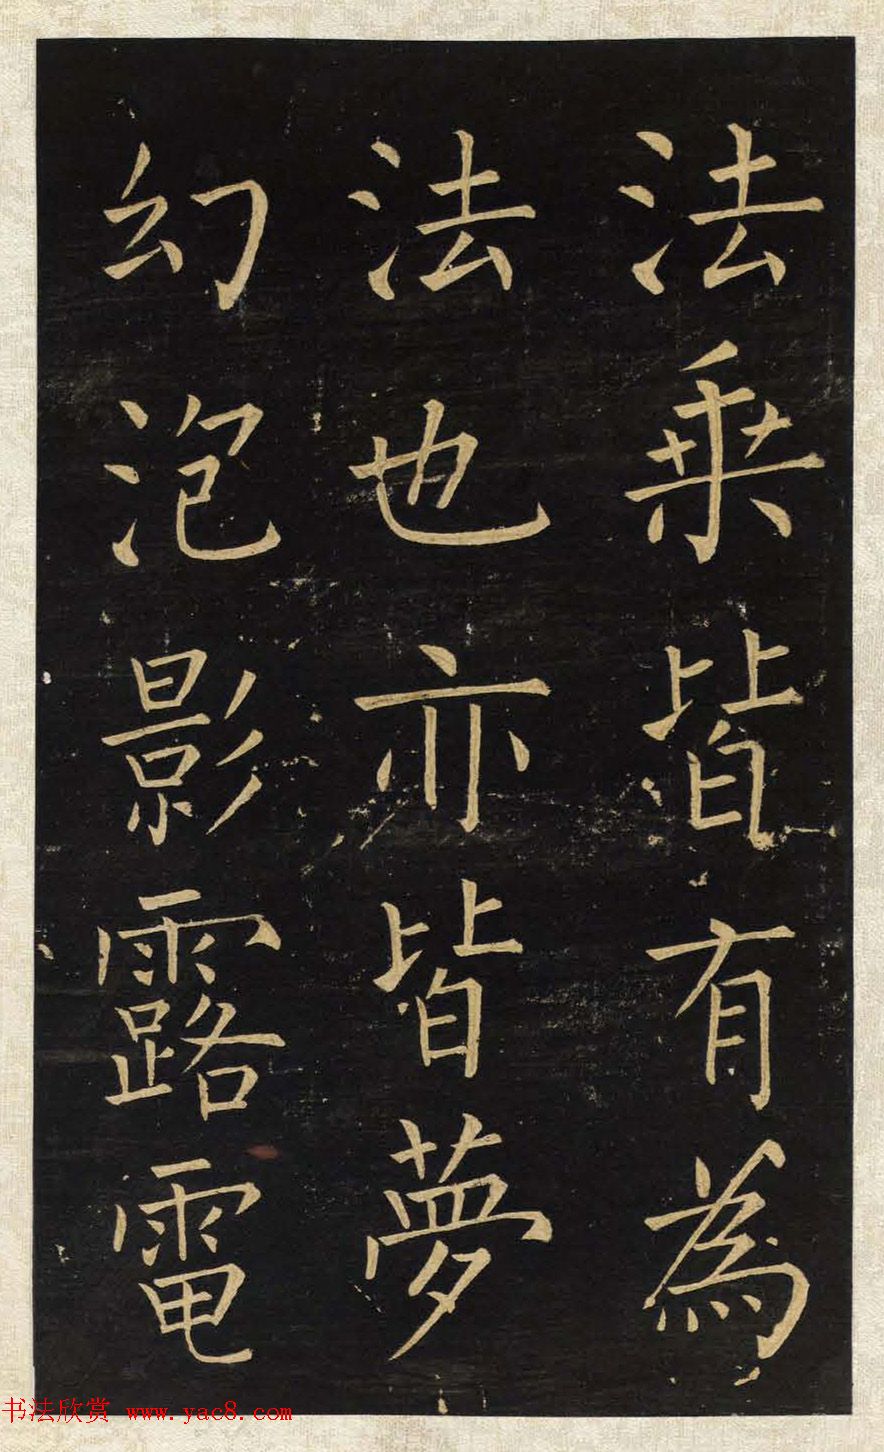 法乘皆有為
法也亦皆夢
幻泡影露電
书法欣赏 www.yac8.com